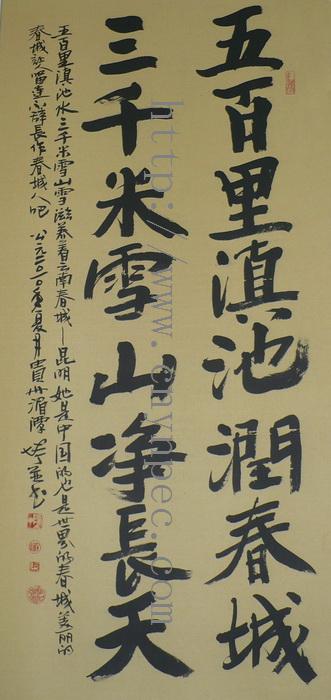 五百里滇池潤春城
三千米雪山净長天
五百里滇池水三千米雪山雪滋养着云南春城—昆明她是中国的也是世界的春城美丽的
春城让人留连不辞长作春城人吧 公元二〇一〇年夏月贵州湄潭